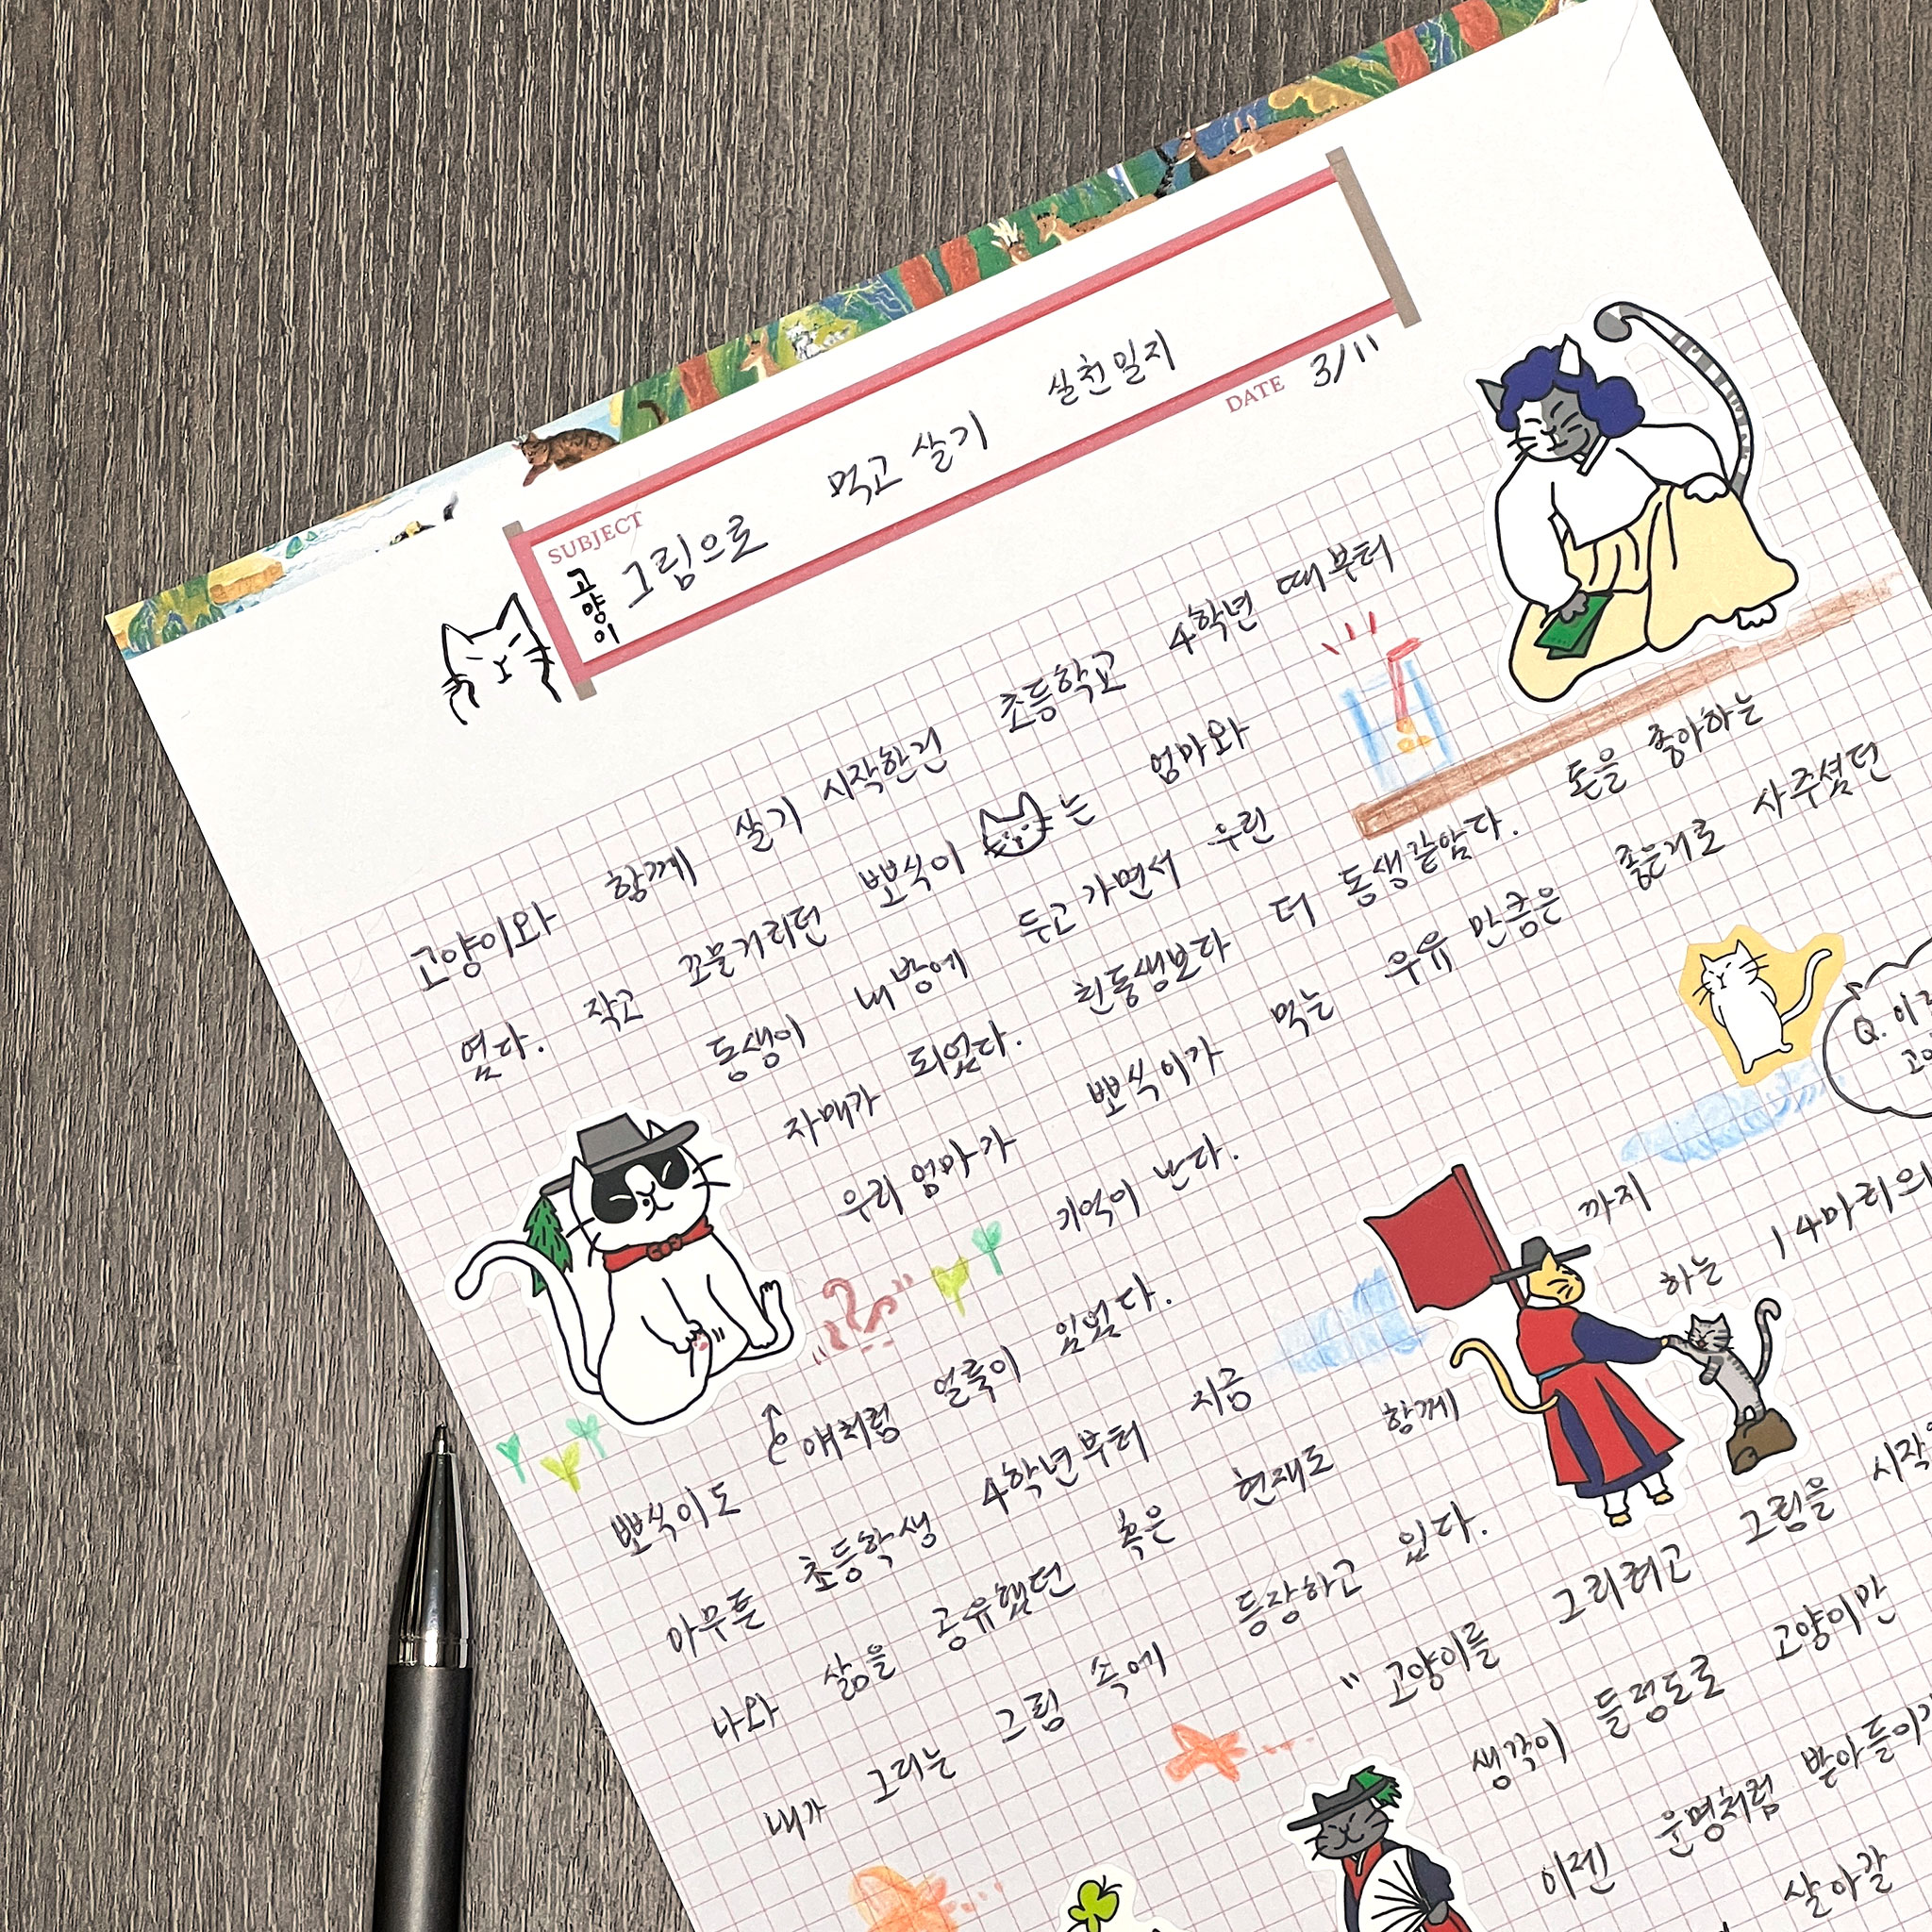 SUBJECT
고양이 그림으로 먹고 살기 실천일지
DATE 3/11
고양이와 함께 살기 시작한건 초등학교 4학년 때부터
였다. 작고 꼬물거리던 뽀식이 는 엄마와
동생이 내방에 두고가면서 우린
자매가 되었다. 친동생보다 더 동생같았다. 돈을 좋아하는
우리엄마가 뽀식이가 먹는 우유 만큼은 좋은거로 사주셨던
기억이 난다.
Q. 이
고양
뽀식이도 얘처럼 얼룩이 있었다.
아무튼 초등학생 4학년부터 지금 까지
나와 삶을 공유했던 혹은 현재도 함께 하는 14마리의
내가 그리는 그림 속에 등장하고 있다.
"고양이를 그리려고 그림을 시작
생각이 들정도로 고양이만
이젠 운명처럼 받아들이
살아갈